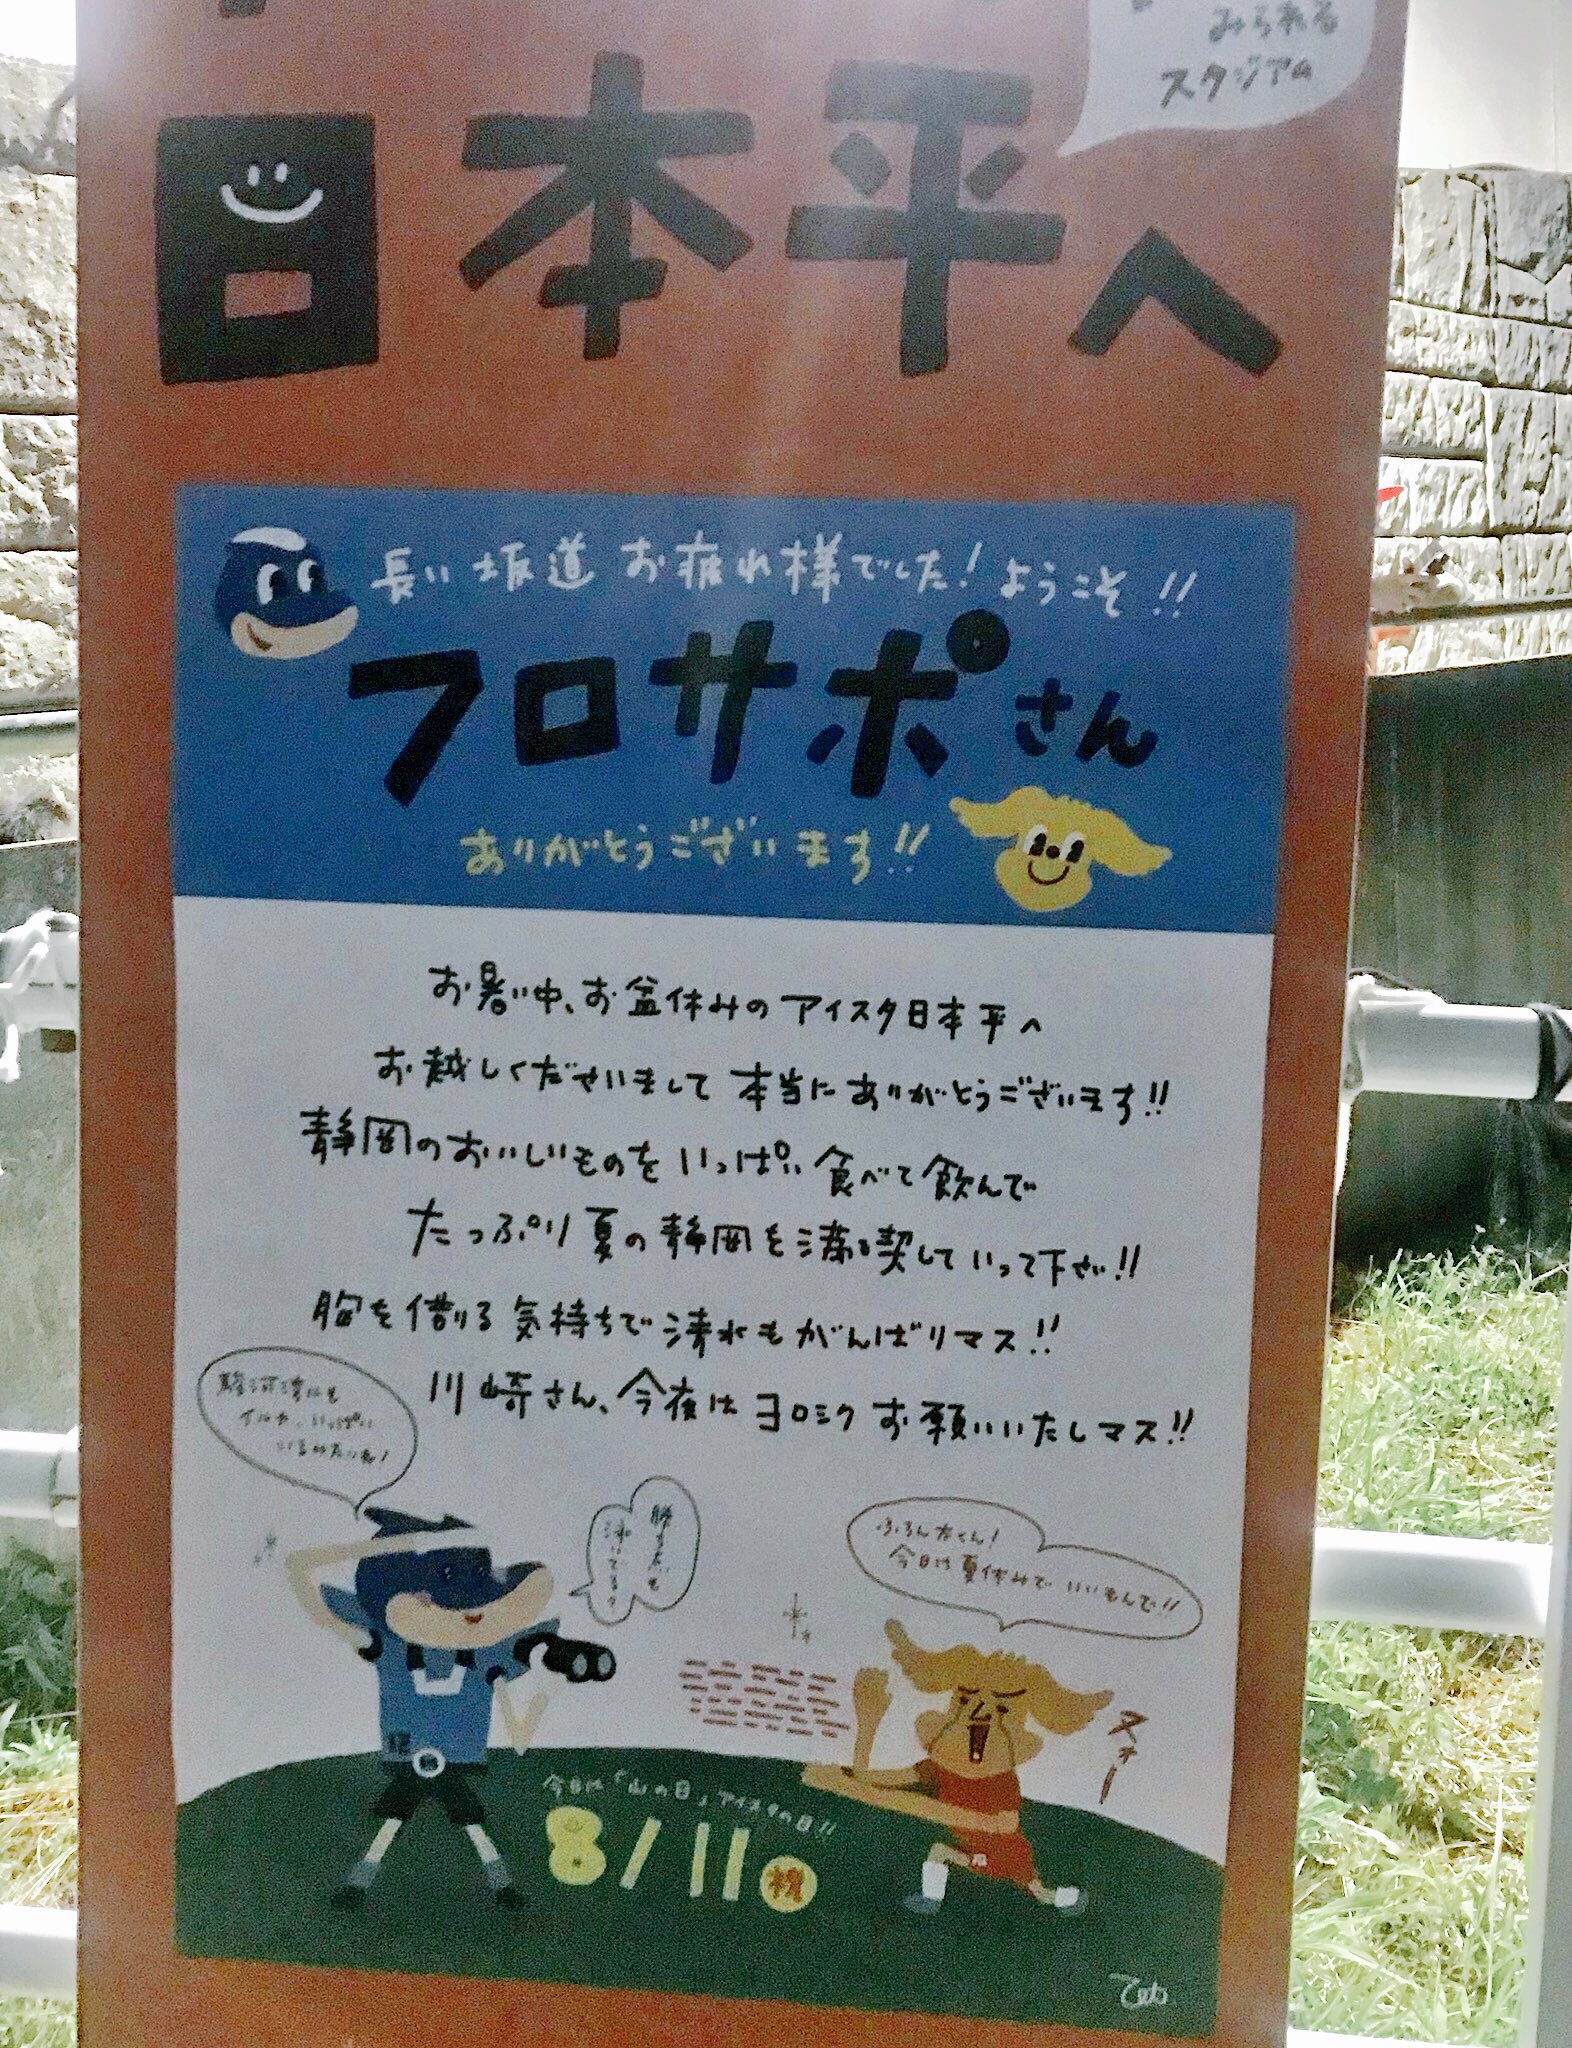 みられる
スタジアム
日本平へ
長い坂道 お疲れ様でした! ようこそ!!
フロサポさん
ありがとうございます!!
お暑い中、お盆休みのアイスタ日本平へ
お越しくださいまして 本当にありがとうございます!!
静岡のおいしいものをいっぱい食べて飲んで
たっぷり夏の静岡を満喫していって下さい!!
胸を借りる気持ちで清水もがんばりマス!!
川崎さん、今夜はヨロシクお願いいたしマス!!
駿河湾にも
イルカ、いっぱい
いるみたいだ!
ふろん太くん!
今日は夏休みでいいもんで!!
ヌォー
今日は「山の日」アイスタの日!!
8/11 祝